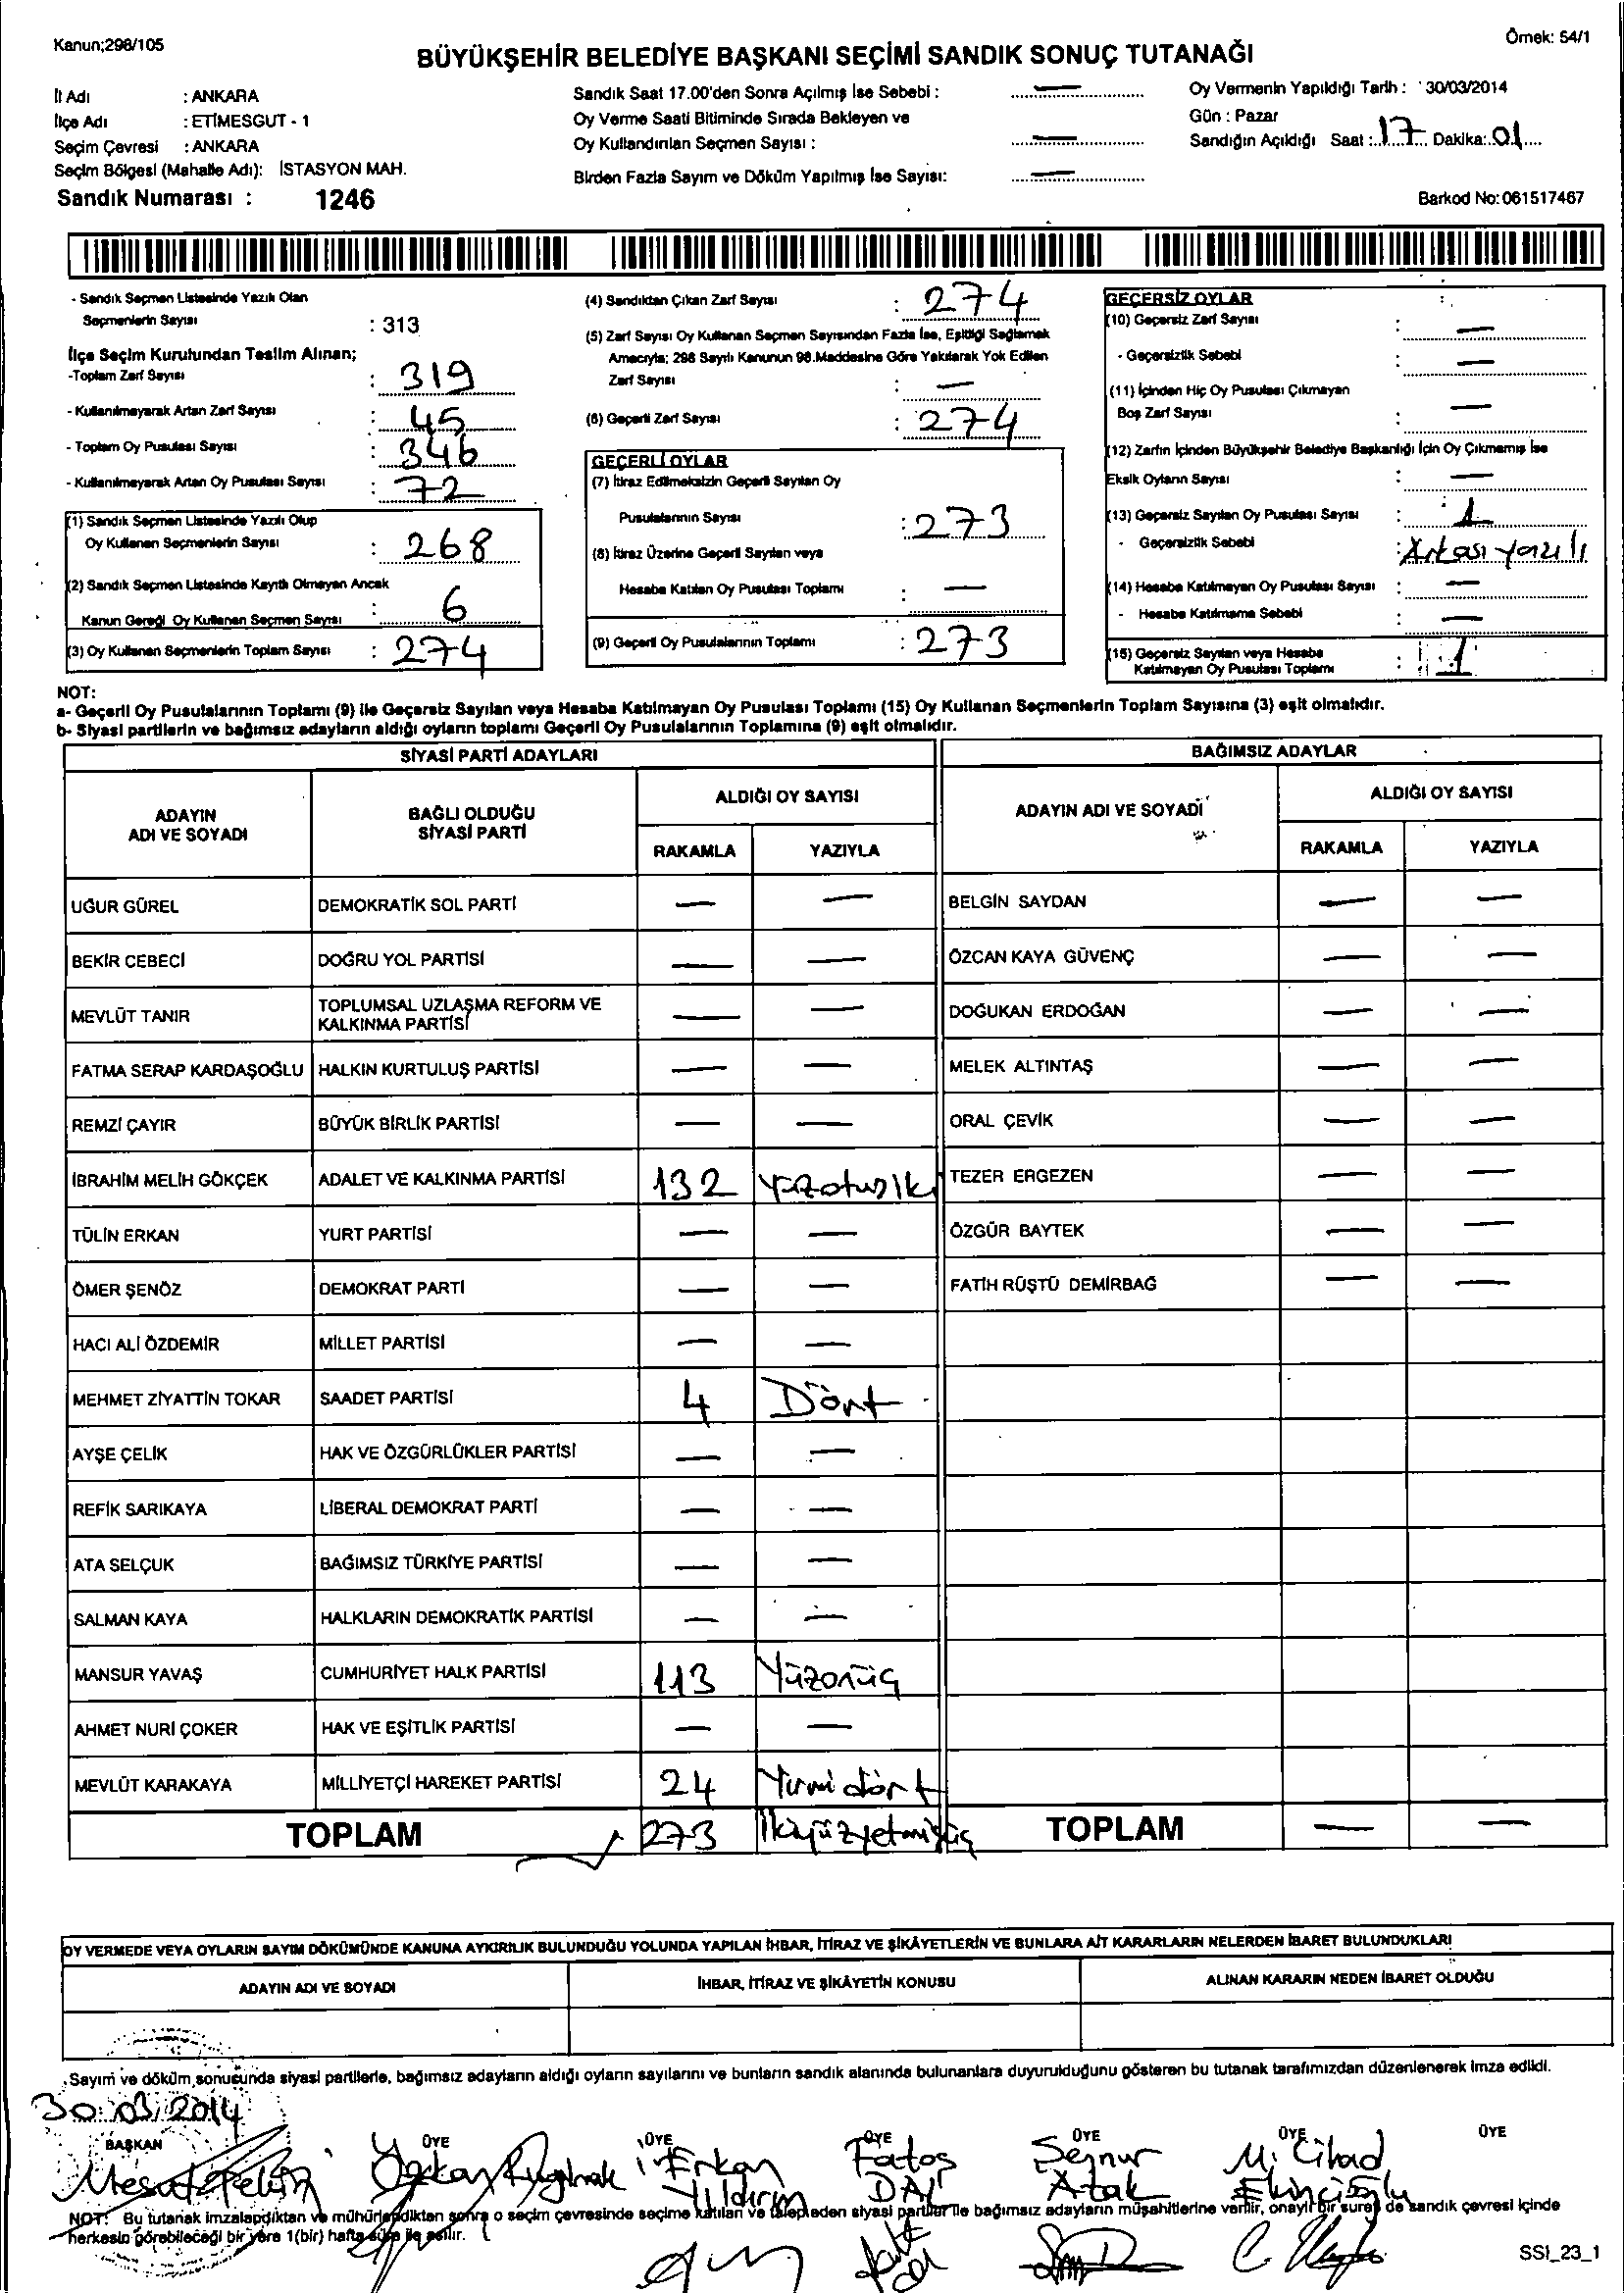 Kanun;298/105
Örnek: 54/1
BÜYÜKŞEHİR BELEDİYE BAŞKANI SEÇİMİ SANDIK SONUÇ TUTANAĞI
İl Adı : ANKARA
İlçe Adı : ETİMESGUT - 1
Seçim Çevresi : ANKARA
Seçim Bölgesi (Mahalle Adı): İSTASYON MAH.
Sandık Numarası : 1246
Sandık Saat 17.00'den Sonra Açılmış İse Sebebi : —
Oy Verme Saati Bitiminde Sırada Bekleyen ve
Oy Kullandırılan Seçmen Sayısı : —
Birden Fazla Sayım ve Döküm Yapılmış İse Sayısı: —
Oy Vermenin Yapıldığı Tarih : 30/03/2014
Gün : Pazar
Sandığın Açıldığı Saat : 17 Dakika: 01
Barkod No: 061517467
- Sandık Seçmen Listesinde Yazılı Olan
Seçmenlerin Sayısı : 313
İlçe Seçim Kurulundan Teslim Alınan;
-Toplam Zarf Sayısı : 319
- Kullanılmayarak Artan Zarf Sayısı : 45
- Toplam Oy Pusulası Sayısı : 346
- Kullanılmayarak Artan Oy Pusulası Sayısı : 72
(1) Sandık Seçmen Listesinde Yazılı Olup
Oy Kullanan Seçmenlerin Sayısı : 268
(2) Sandık Seçmen Listesinde Kayıtlı Olmayan Ancak
Kanun Gereği Oy Kullanan Seçmen Sayısı : 6
(3) Oy Kullanan Seçmenlerin Toplam Sayısı : 274
(4) Sandıktan Çıkan Zarf Sayısı : 274
(5) Zarf Sayısı Oy Kullanan Seçmen Sayısından Fazla İse, Eşitliği Sağlamak
Amacıyla; 298 Sayılı Kanunun 98.Maddesine Göre Yakılarak Yok Edilen
Zarf Sayısı : —
(6) Geçerli Zarf Sayısı : 274
GEÇERLİ OYLAR
(7) İtiraz Edilmeksizin Geçerli Sayılan Oy
Pusulalarının Sayısı : 273
(8) İtiraz Üzerine Geçerli Sayılan veya
Hesaba Katılan Oy Pusulası Toplamı : —
(9) Geçerli Oy Pusulalarının Toplamı : 273
GEÇERSİZ OYLAR
(10) Geçersiz Zarf Sayısı : —
- Geçersizlik Sebebi : —
(11) İçinden Hiç Oy Pusulası Çıkmayan
Boş Zarf Sayısı : —
(12) Zarfın İçinden Büyükşehir Belediye Başkanlığı İçin Oy Çıkmamış İse
Eksik Oyların Sayısı : —
(13) Geçersiz Sayılan Oy Pusulası Sayısı : 1
- Geçersizlik Sebebi : Arkası yazılı
(14) Hesaba Katılmayan Oy Pusulası Sayısı : —
- Hesaba Katılmama Sebebi : —
(15) Geçersiz Sayılan veya Hesaba
Katılmayan Oy Pusulası Toplamı : 1
NOT:
a- Geçerli Oy Pusulalarının Toplamı (9) ile Geçersiz Sayılan veya Hesaba Katılmayan Oy Pusulası Toplamı (15) Oy Kullanan Seçmenlerin Toplam Sayısına (3) eşit olmalıdır.
b- Siyasi partilerin ve bağımsız adayların aldığı oyların toplamı Geçerli Oy Pusulalarının Toplamına (9) eşit olmalıdır.
SİYASİ PARTİ ADAYLARI
ADAYIN ADI VE SOYADI
BAĞLI OLDUĞU SİYASİ PARTİ
ALDIĞI OY SAYISI
RAKAMLA YAZIYLA
UĞUR GÜREL DEMOKRATİK SOL PARTİ — —
BEKİR CEBECİ DOĞRU YOL PARTİSİ — —
MEVLÜT TANIR TOPLUMSAL UZLAŞMA REFORM VE KALKINMA PARTİSİ — —
FATMA SERAP KARDAŞOĞLU HALKIN KURTULUŞ PARTİSİ — —
REMZİ ÇAYIR BÜYÜK BİRLİK PARTİSİ — —
İBRAHİM MELİH GÖKÇEK ADALET VE KALKINMA PARTİSİ 132 Yüzotuziki
TÜLİN ERKAN YURT PARTİSİ — —
ÖMER ŞENÖZ DEMOKRAT PARTİ — —
HACI ALİ ÖZDEMİR MİLLET PARTİSİ — —
MEHMET ZİYATTİN TOKAR SAADET PARTİSİ 4 Dört
AYŞE ÇELİK HAK VE ÖZGÜRLÜKLER PARTİSİ — —
REFİK SARIKAYA LİBERAL DEMOKRAT PARTİ — —
ATA SELÇUK BAĞIMSIZ TÜRKİYE PARTİSİ — —
SALMAN KAYA HALKLARIN DEMOKRATİK PARTİSİ — —
MANSUR YAVAŞ CUMHURİYET HALK PARTİSİ 113 Yüzonüç
AHMET NURİ ÇOKER HAK VE EŞİTLİK PARTİSİ — —
MEVLÜT KARAKAYA MİLLİYETÇİ HAREKET PARTİSİ 24 Yirmidört
TOPLAM 273 İkiyüzyetmişüç
BAĞIMSIZ ADAYLAR
ADAYIN ADI VE SOYADI
ALDIĞI OY SAYISI
RAKAMLA YAZIYLA
BELGİN SAYDAN — —
ÖZCAN KAYA GÜVENÇ — —
DOĞUKAN ERDOĞAN — —
MELEK ALTINTAŞ — —
ORAL ÇEVİK — —
TEZER ERGEZEN — —
ÖZGÜR BAYTEK — —
FATİH RÜŞTÜ DEMİRBAĞ — —
TOPLAM — —
OY VERMEDE VEYA OYLARIN SAYIM DÖKÜMÜNDE KANUNA AYKIRILIK BULUNDUĞU YOLUNDA YAPILAN İHBAR, İTİRAZ VE ŞİKÂYETLERİN VE BUNLARA AİT KARARLARIN NELERDEN İBARET BULUNDUKLARI
ADAYIN ADI VE SOYADI
İHBAR, İTİRAZ VE ŞİKÂYETİN KONUSU
ALINAN KARARIN NEDEN İBARET OLDUĞU
Sayım ve döküm sonucunda siyasi partilerle, bağımsız adayların aldığı oyların sayılarını ve bunların sandık alanında bulunanlara duyurulduğunu gösteren bu tutanak tarafımızdan düzenlenerek imza edildi.
30.03.2014
BAŞKAN ÜYE ÜYE ÜYE ÜYE ÜYE ÜYE
Erkan Yıldırım
Fatoş DAL
Sejnur Atak
M. Cihad Ekincioğlu
NOT: Bu tutanak imzalandıktan ve mühürlendikten sonra o seçim çevresinde seçime katılan ve talep eden siyasi partiler ile bağımsız adayların müşahitlerine verilir, onaylı bir sureti de sandık çevresi içinde
herkesin görebileceği bir yere 1(bir) hafta süre ile asılır.
SSI_23_1